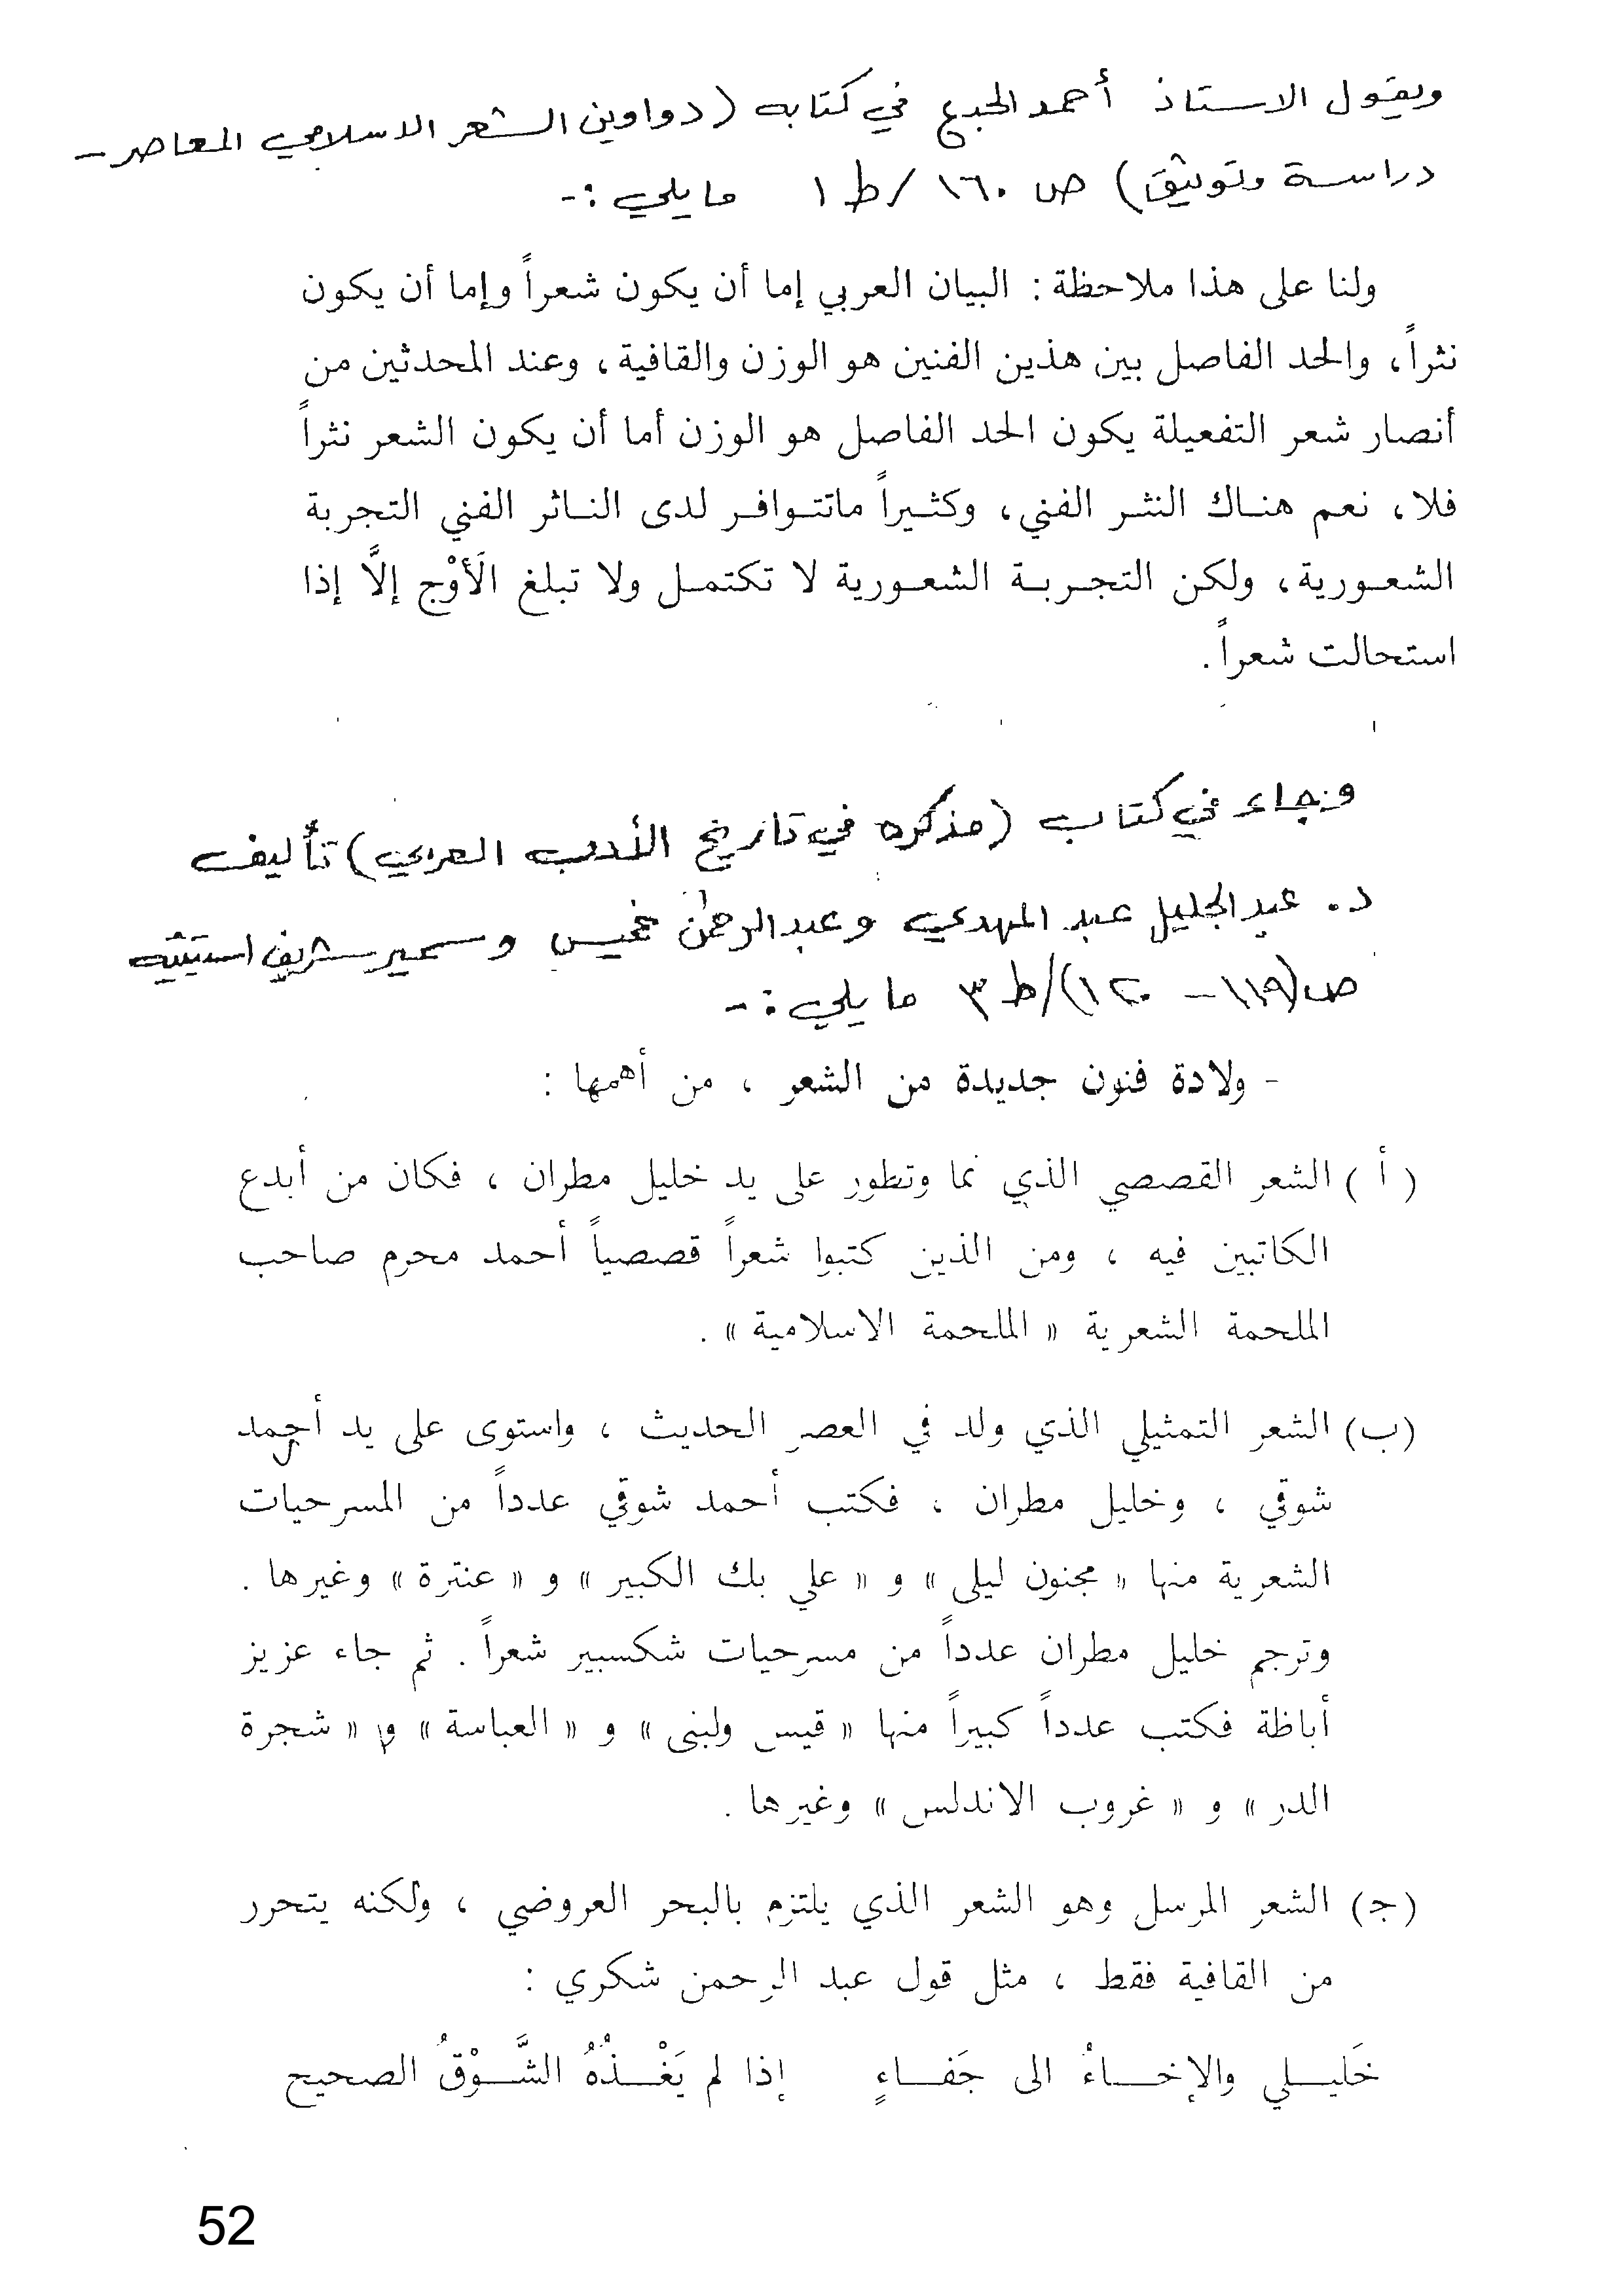 ويقول الاستاذ أحمد الجدع في كتابه (دواوين الشعر الاسلامي المعاصر -
دراسة وتوثيق) ص ١٦٠ / ط ١ مايلي :-
ولنا على هذا ملاحظة : البيان العربي إما أن يكون شعراً وإما أن يكون
نثراً، والحد الفاصل بين هذين الفنين هو الوزن والقافية، وعند المحدثين من
أنصار شعر التفعيلة يكون الحد الفاصل هو الوزن أما أن يكون الشعر نثراً
فلا، نعم هناك النثر الفني، وكثيراً ماتتوافر لدى الناثر الفني التجربة
الشعورية، ولكن التجربة الشعورية لا تكتمل ولا تبلغ الَأوْج إلَّا إذا
استحالت شعراً.
وجاء في كتاب (مذكره في تاريخ الأدب العربي) تأليف
د. عبدالجليل عبد المهدي وعبدالرحمن خميس وسمير شريف استيتيه
ص(١١٩ - ١٢٠)/ط ٣ مايلي :-
- ولادة فنون جديدة من الشعر ، من أهمها :
( أ ) الشعر القصصي الذي نما وتطور على يد خليل مطران ، فكان من أبدع
الكاتبين فيه ، ومن الذين كتبوا شعراً قصصياً أحمد محرم صاحب
الملحمة الشعرية « الملحمة الاسلامية » .
(ب) الشعر التمثيلي الذي ولد في العصر الحديث ، واستوى على يد أحمد
شوقي ، وخليل مطران ، فكتب أحمد شوقي عدداً من المسرحيات
الشعرية منها « مجنون ليلى » و « علي بك الكبير » و « عنترة » وغيرها .
وترجم خليل مطران عدداً من مسرحيات شكسبير شعراً . ثم جاء عزيز
أباظة فكتب عدداً كبيراً منها « قيس ولبنى » و « العباسة » و « شجرة
الدر » و « غروب الاندلس » وغيرها .
(جـ) الشعر المرسل وهو الشعر الذي يلتزم بالبحر العروضي ، ولكنه يتحرر
من القافية فقط ، مثل قول عبد الرحمن شكري :
خَليلي والإخاءُ الى جَفاءٍ إذا لم يَغْذُهُ الشَّوْقُ الصحيح
52